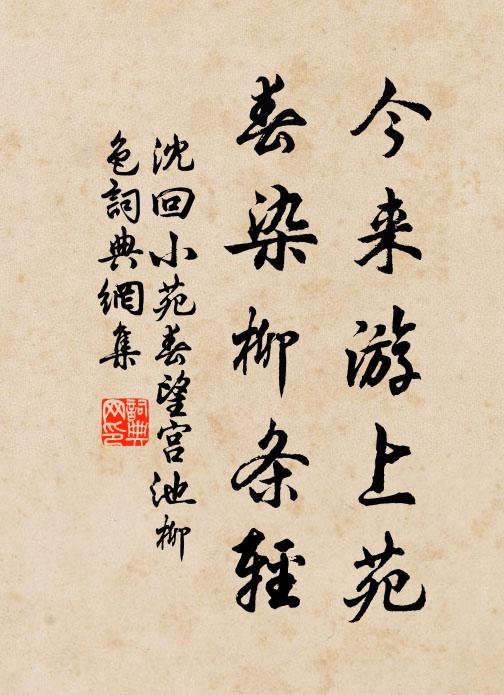 今来游上苑
春染柳条轻
沈回小苑春望宫池柳
色詞典網集
詞典
网印